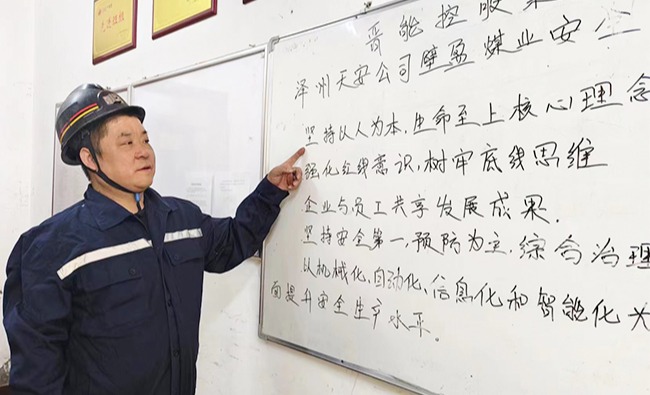 先进班组
晋能控股集
泽州天安公司壁盈煤业安全
坚持以人为本,生命至上核心理念
强化红线意识,树牢底线思维
企业与员工共享发展成果.
坚持安全第一,预防为主,综合治理
以机械化,自动化、信息化和智能化为
面提升安全生产水平。